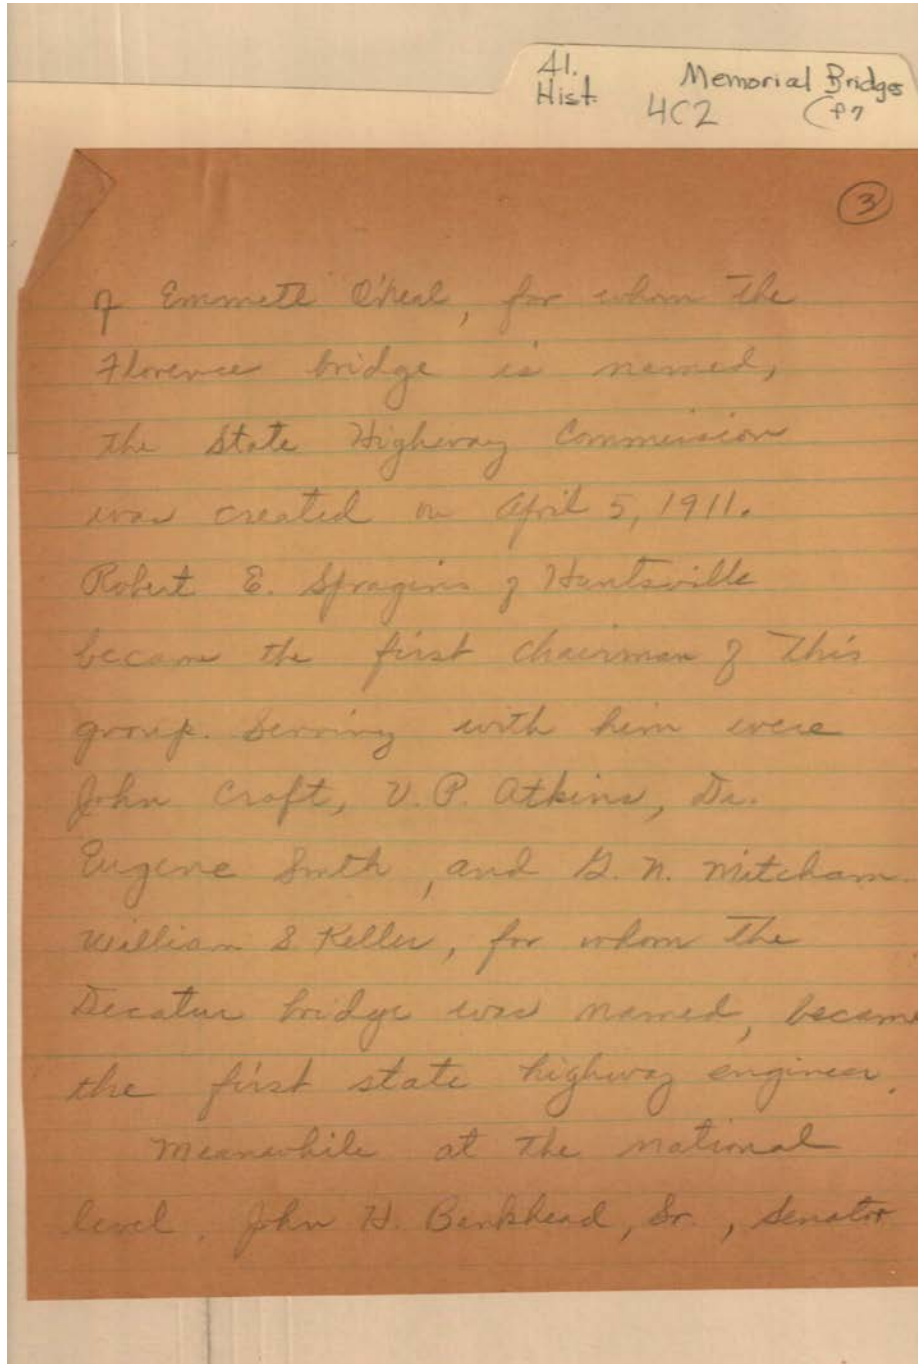 Al. Memorial Bridges
Hist. 4C2 (P7
3
of Emmett O'Neal, for whom the
Florence bridge is named,
the State Highway Commission
was created on April 5, 1911.
Robert E. Spragins of Huntsville
became the first chairman of this
group. Serving with him were
John Craft, V. P. Atkins, Dr.
Eugene Smith, and G. N. Mitcham.
William S Keller, for whom the
Decatur bridge was named, became
the first state highway engineer.
Meanwhile at the national
level, John H. Bankhead, Sr., Senator